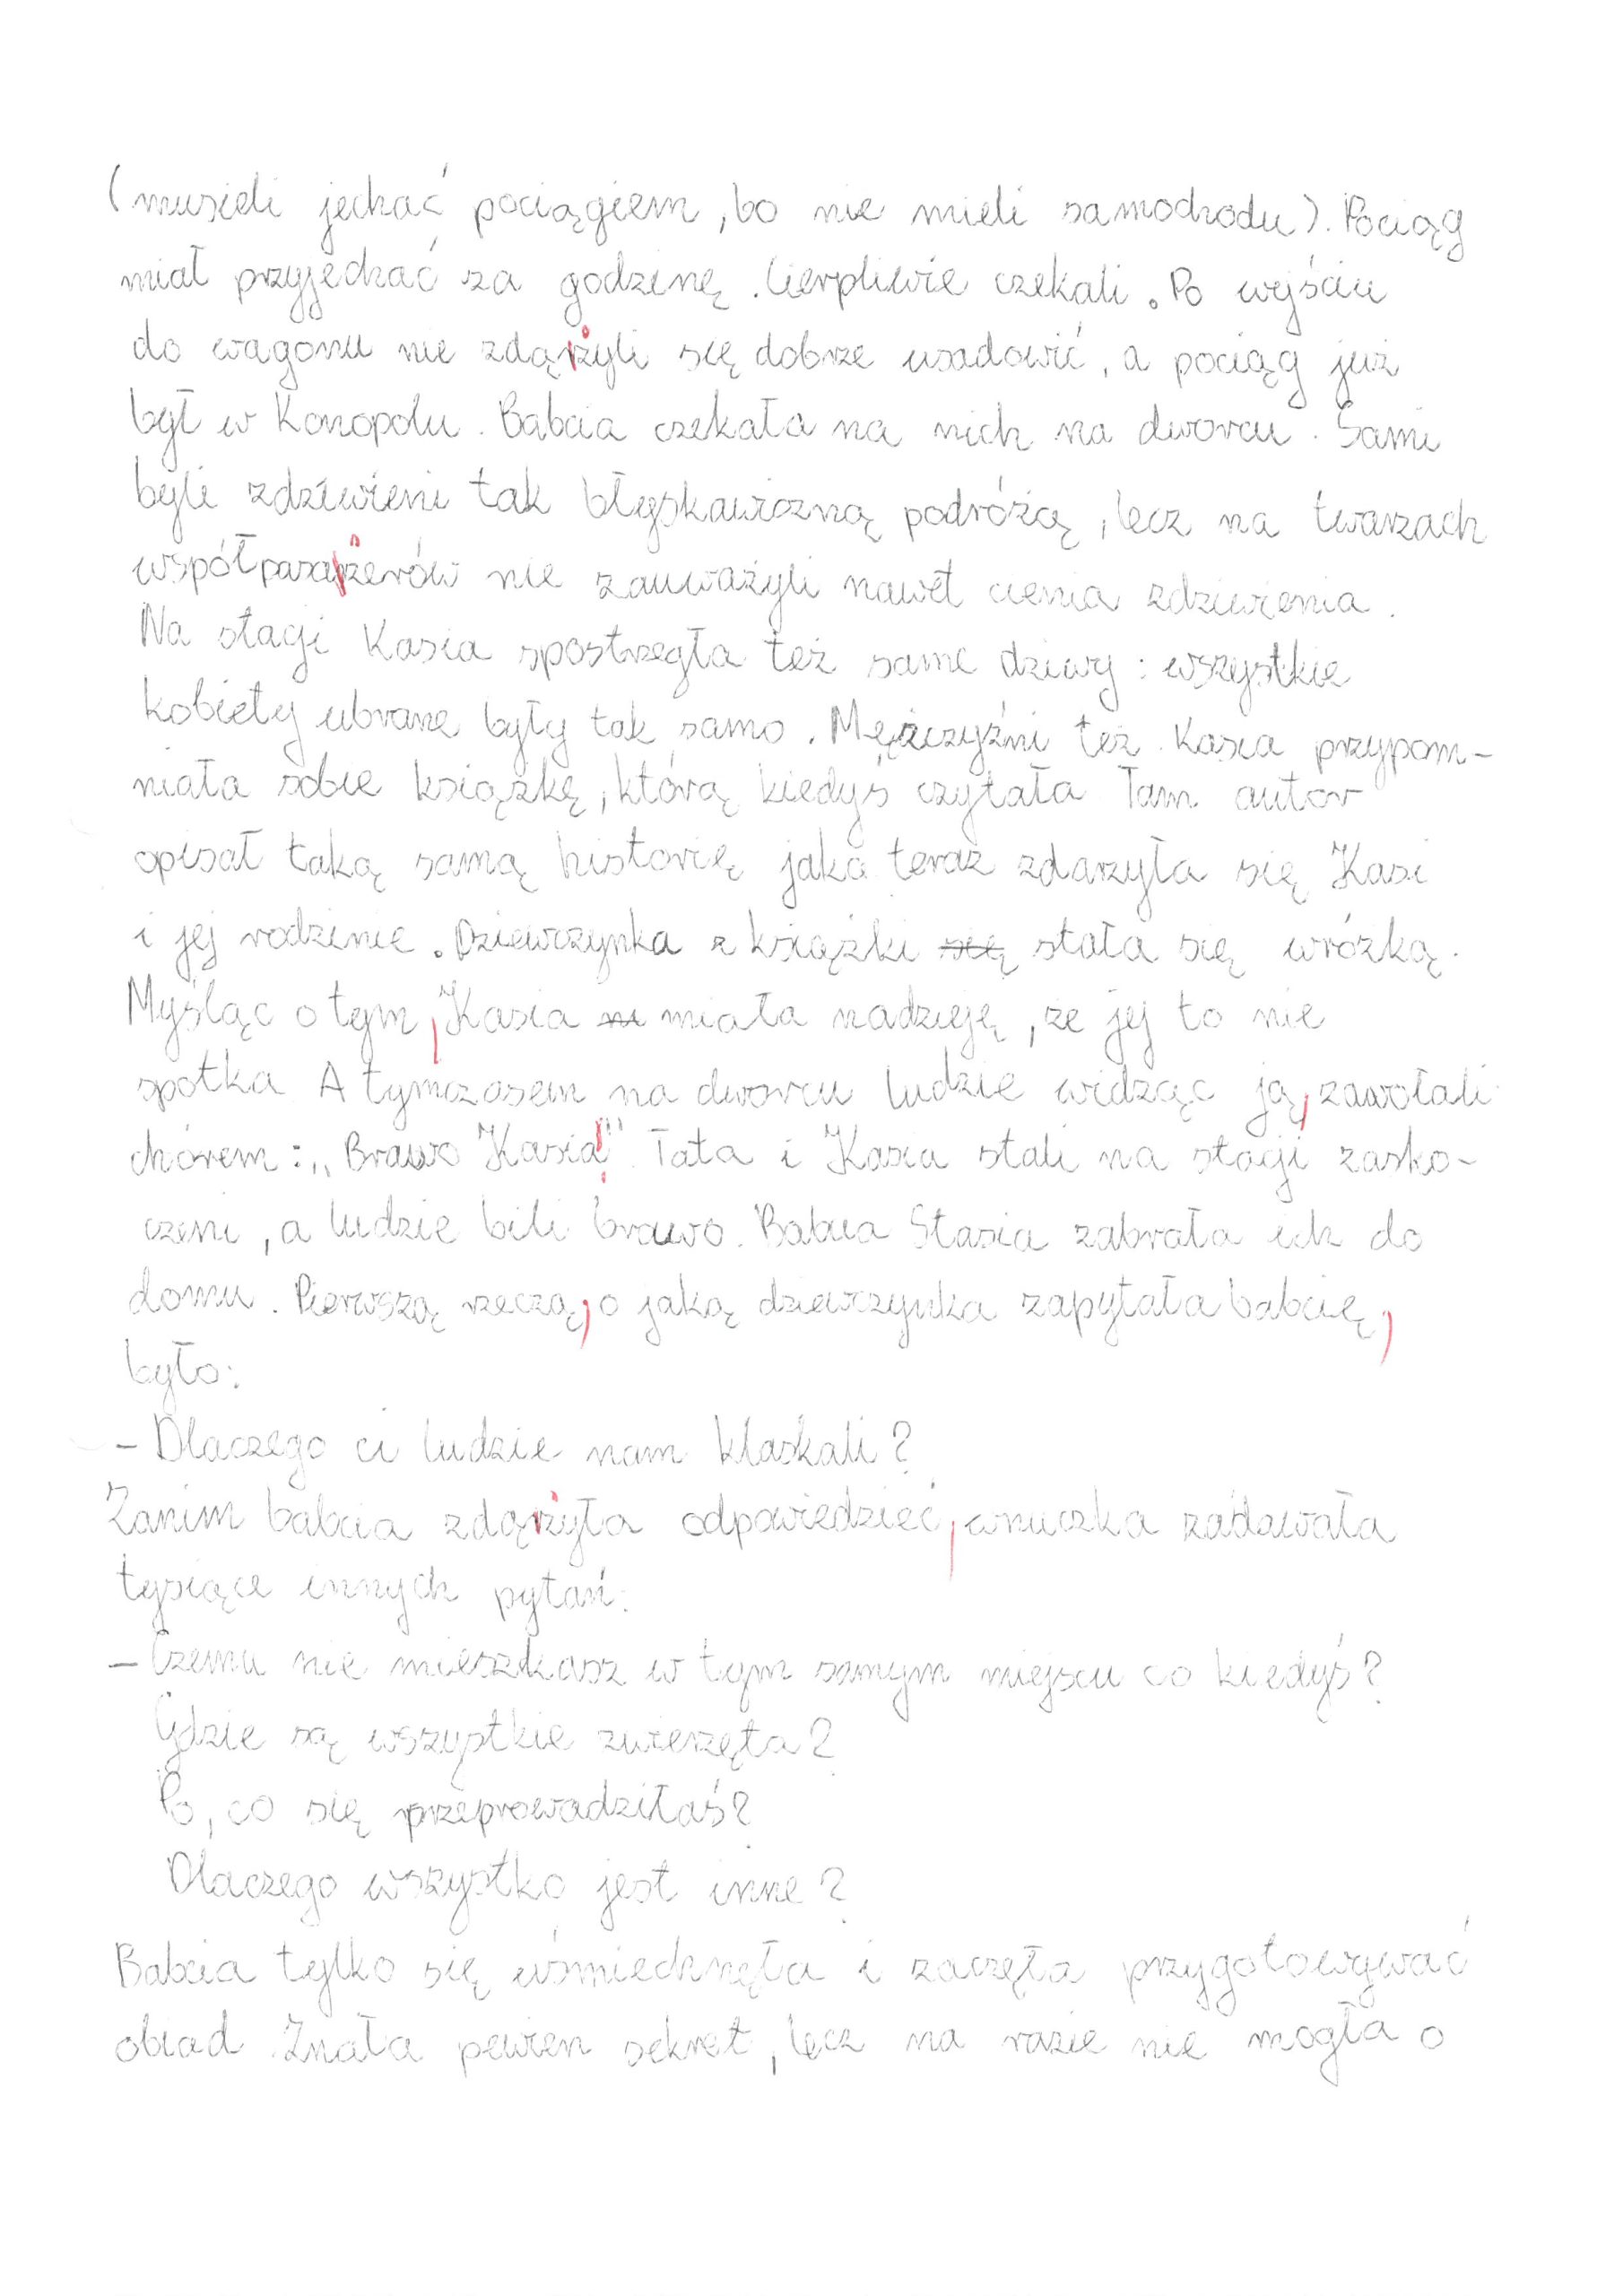 (musieli jechać pociągiem, bo nie mieli samochodu). Pociąg
miał przyjechać za godzinę. Cierpliwie czekali. Po wejściu
do wagonu nie zdążyli się dobrze usadowić, a pociąg już
był w Konopolu. Babcia czekała na nich na dworcu. Sami
byli zdziwieni tak błyskawiczną podróżą, lecz na twarzach
współpasażerów nie zauważyli nawet cienia zdziwienia.
Na stacji Kasia spostrzegła też same dziwy: wszystkie
kobiety ubrane były tak samo. Mężczyźni też. Kasia przypom-
niała sobie książkę, którą kiedyś czytała. Tam autor
opisał taką samą historię jaka teraz zdarzyła się Kasi
i jej rodzinie. Dziewczynka z książki się stała się wróżką.
Myśląc o tym, Kasia ni miała nadzieję, że jej to nie
spotka. A tymczasem na dworcu ludzie widząc ją, zawołali
chórem: „Brawo Kasia!” Tata i Kasia stali na stacji zasko-
czeni, a ludzie bili brawo. Babcia Stasia zabrała ich do
domu. Pierwszą rzeczą, o jaką dziewczynka zapytała babcię,
było:
- Dlaczego ci ludzie nam klaskali?
Zanim babcia zdążyła odpowiedzieć, wnuczka zadawała
tysiące innych pytań:
- Czemu nie mieszkasz w tym samym miejscu co kiedyś?
Gdzie są wszystkie zwierzęta?
Po, co się przeprowadziłaś?
Dlaczego wszystko jest inne?
Babcia tylko się uśmiechnęła i zaczęła przygotowywać
obiad. Znała pewien sekret, lecz na razie nie mogła o